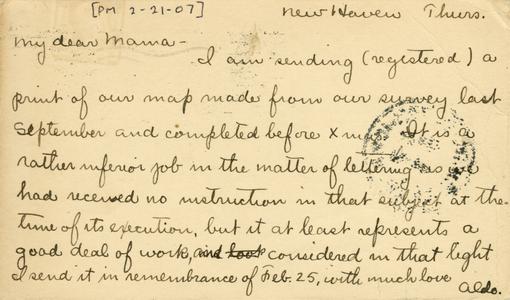 [PM 2-21-07]
New Haven Thurs.
My dear Mama-
I am sending (registered) a
print of our map made from our survey last
September and completed before Xmas. It is a
rather inferior job in the matter of lettering as we
had received no instruction in that subject at the
time of its execution, but it at least represents a
good deal of work, and took considered in that light
I send it in remembrance of Feb. 25, with much love
Aldo.